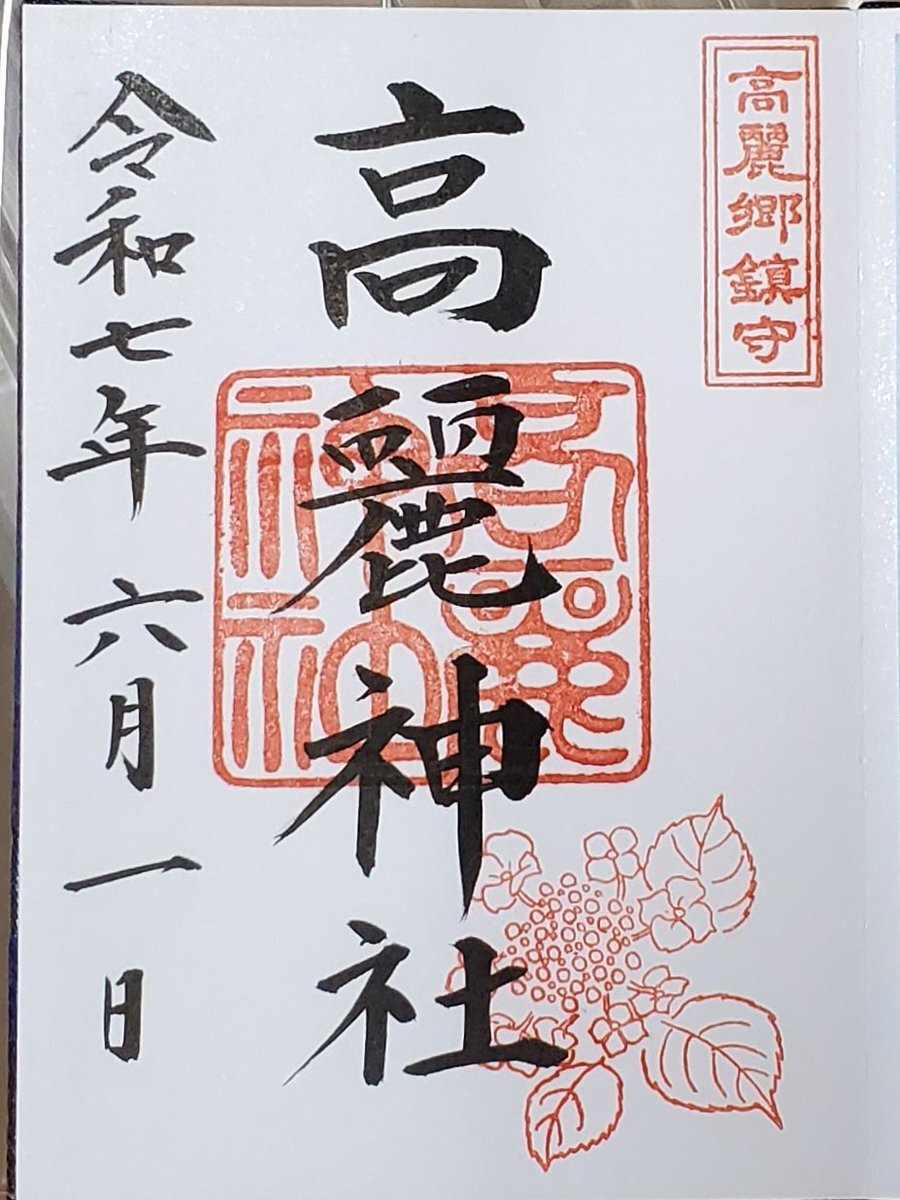 高麗郷鎮守
高麗神社
高麗神社
令和七年 六月 一日